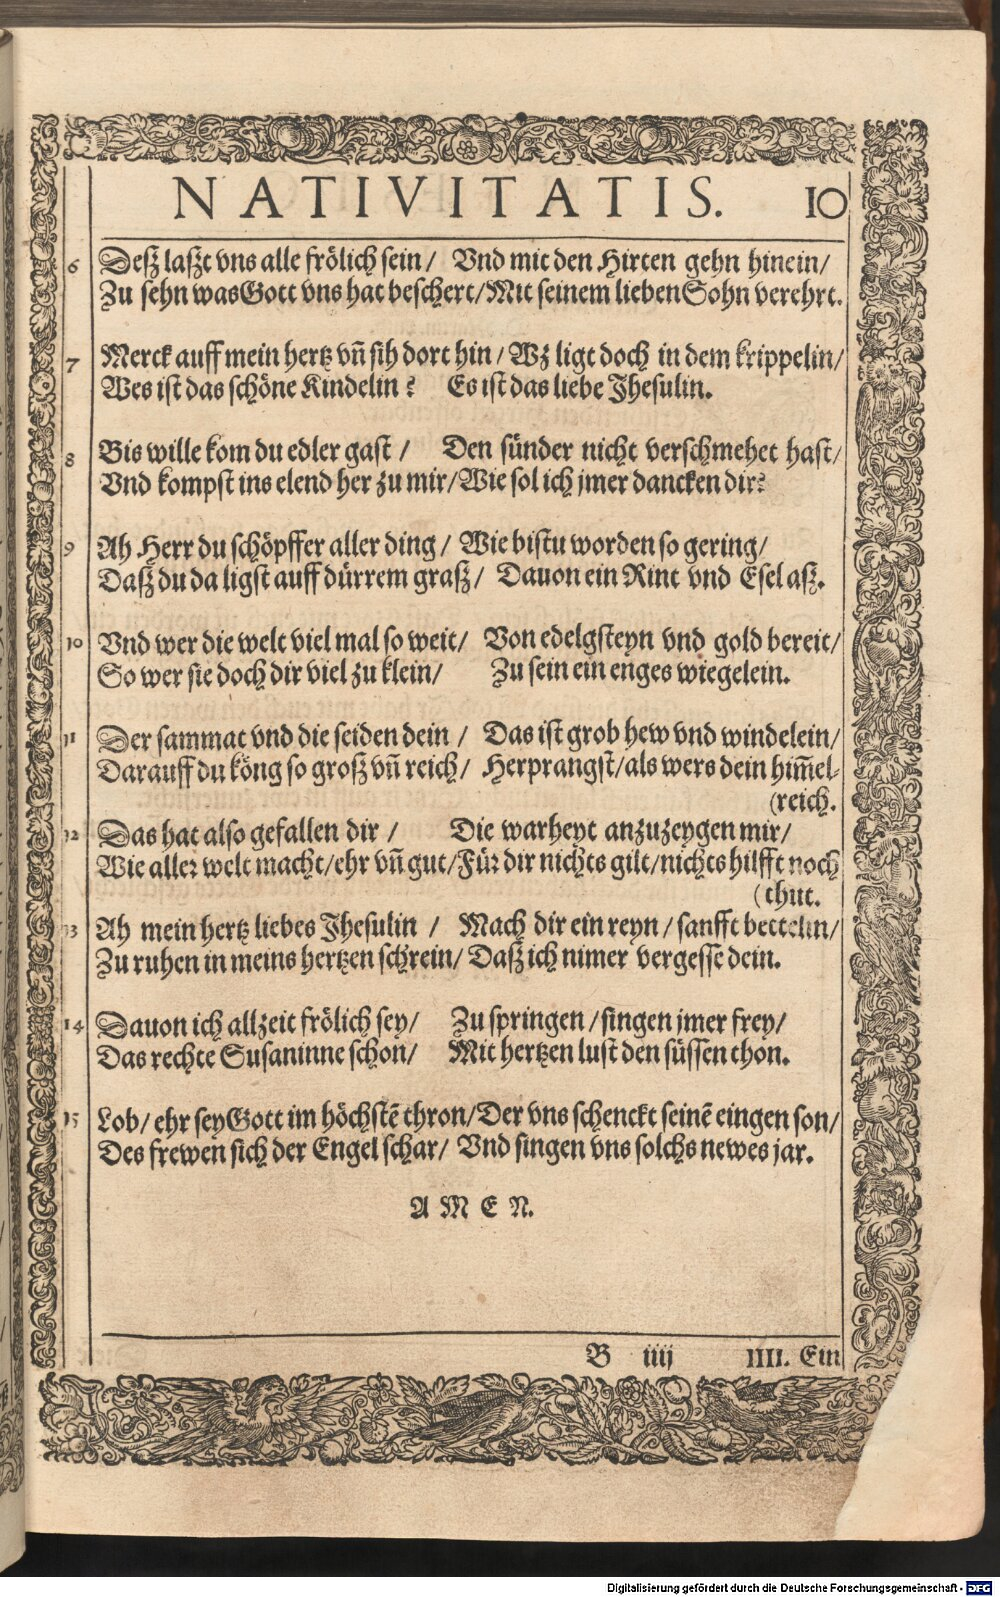 NATIVITATIS. 10
6 Desz laszt vns alle frölich sein / Vnd mit den Hirten gehn hinein /
Zu sehn was Gott vns hat beschert / Mit seinem lieben Sohn verehrt.
7 Merck auff mein hertz vñ sih dort hin / Wz ligt doch in dem krippelin /
Wes ist das schöne Kindelin ? Es ist das liebe Jhesulin.
8 Bis wille kom du edler gast / Den sünder nicht verschmehet hast /
Vnd kompst ins elend her zu mir / Wie sol ich jmer dancken dir?
9 Ah Herr du schöpffer aller ding / Wie bistu worden so gering /
Dasz du da ligst auff dürrem grasz / Dauon ein Rint vnd Esel asz.
10 Vnd wer die welt viel mal so weit / Von edelgsteyn vnd gold bereit /
So wer sie doch dir viel zu klein / Zu sein ein enges wiegelein.
11 Der sammat vnd die seiden dein / Das ist grob hew vnd windelein /
Darauff du köng so grosz vñ reich / Herprangst / als wers dein him̃el-
(reich.
12 Das hat also gefallen dir / Die warheyt anzuzeygen mir /
Wie aller welt macht / ehr vñ gut / Für dir nichts gilt / nichts hilfft noch
(thut.
13 Ah mein hertz liebes Jhesulin / Mach dir ein reyn / sanfft bettelin /
Zu ruhen in meins hertzen schrein / Dasz ich nimer vergesse dein.
14 Dauon ich allzeit frölich sey / Zu springen / singen jmer frey /
Das rechte Susaninne schon / Mit hertzen lust den süssen thon.
15 Lob / ehr sey Gott im höchstē thron / Der vns schenckt seinē eingen son /
Des frewen sich der Engel schar / Vnd singen vns solchs newes jar.
A M E N.
B iiij IIII. Ein
Digitalisierung gefördert durch die Deutsche Forschungsgemeinschaft - DFG